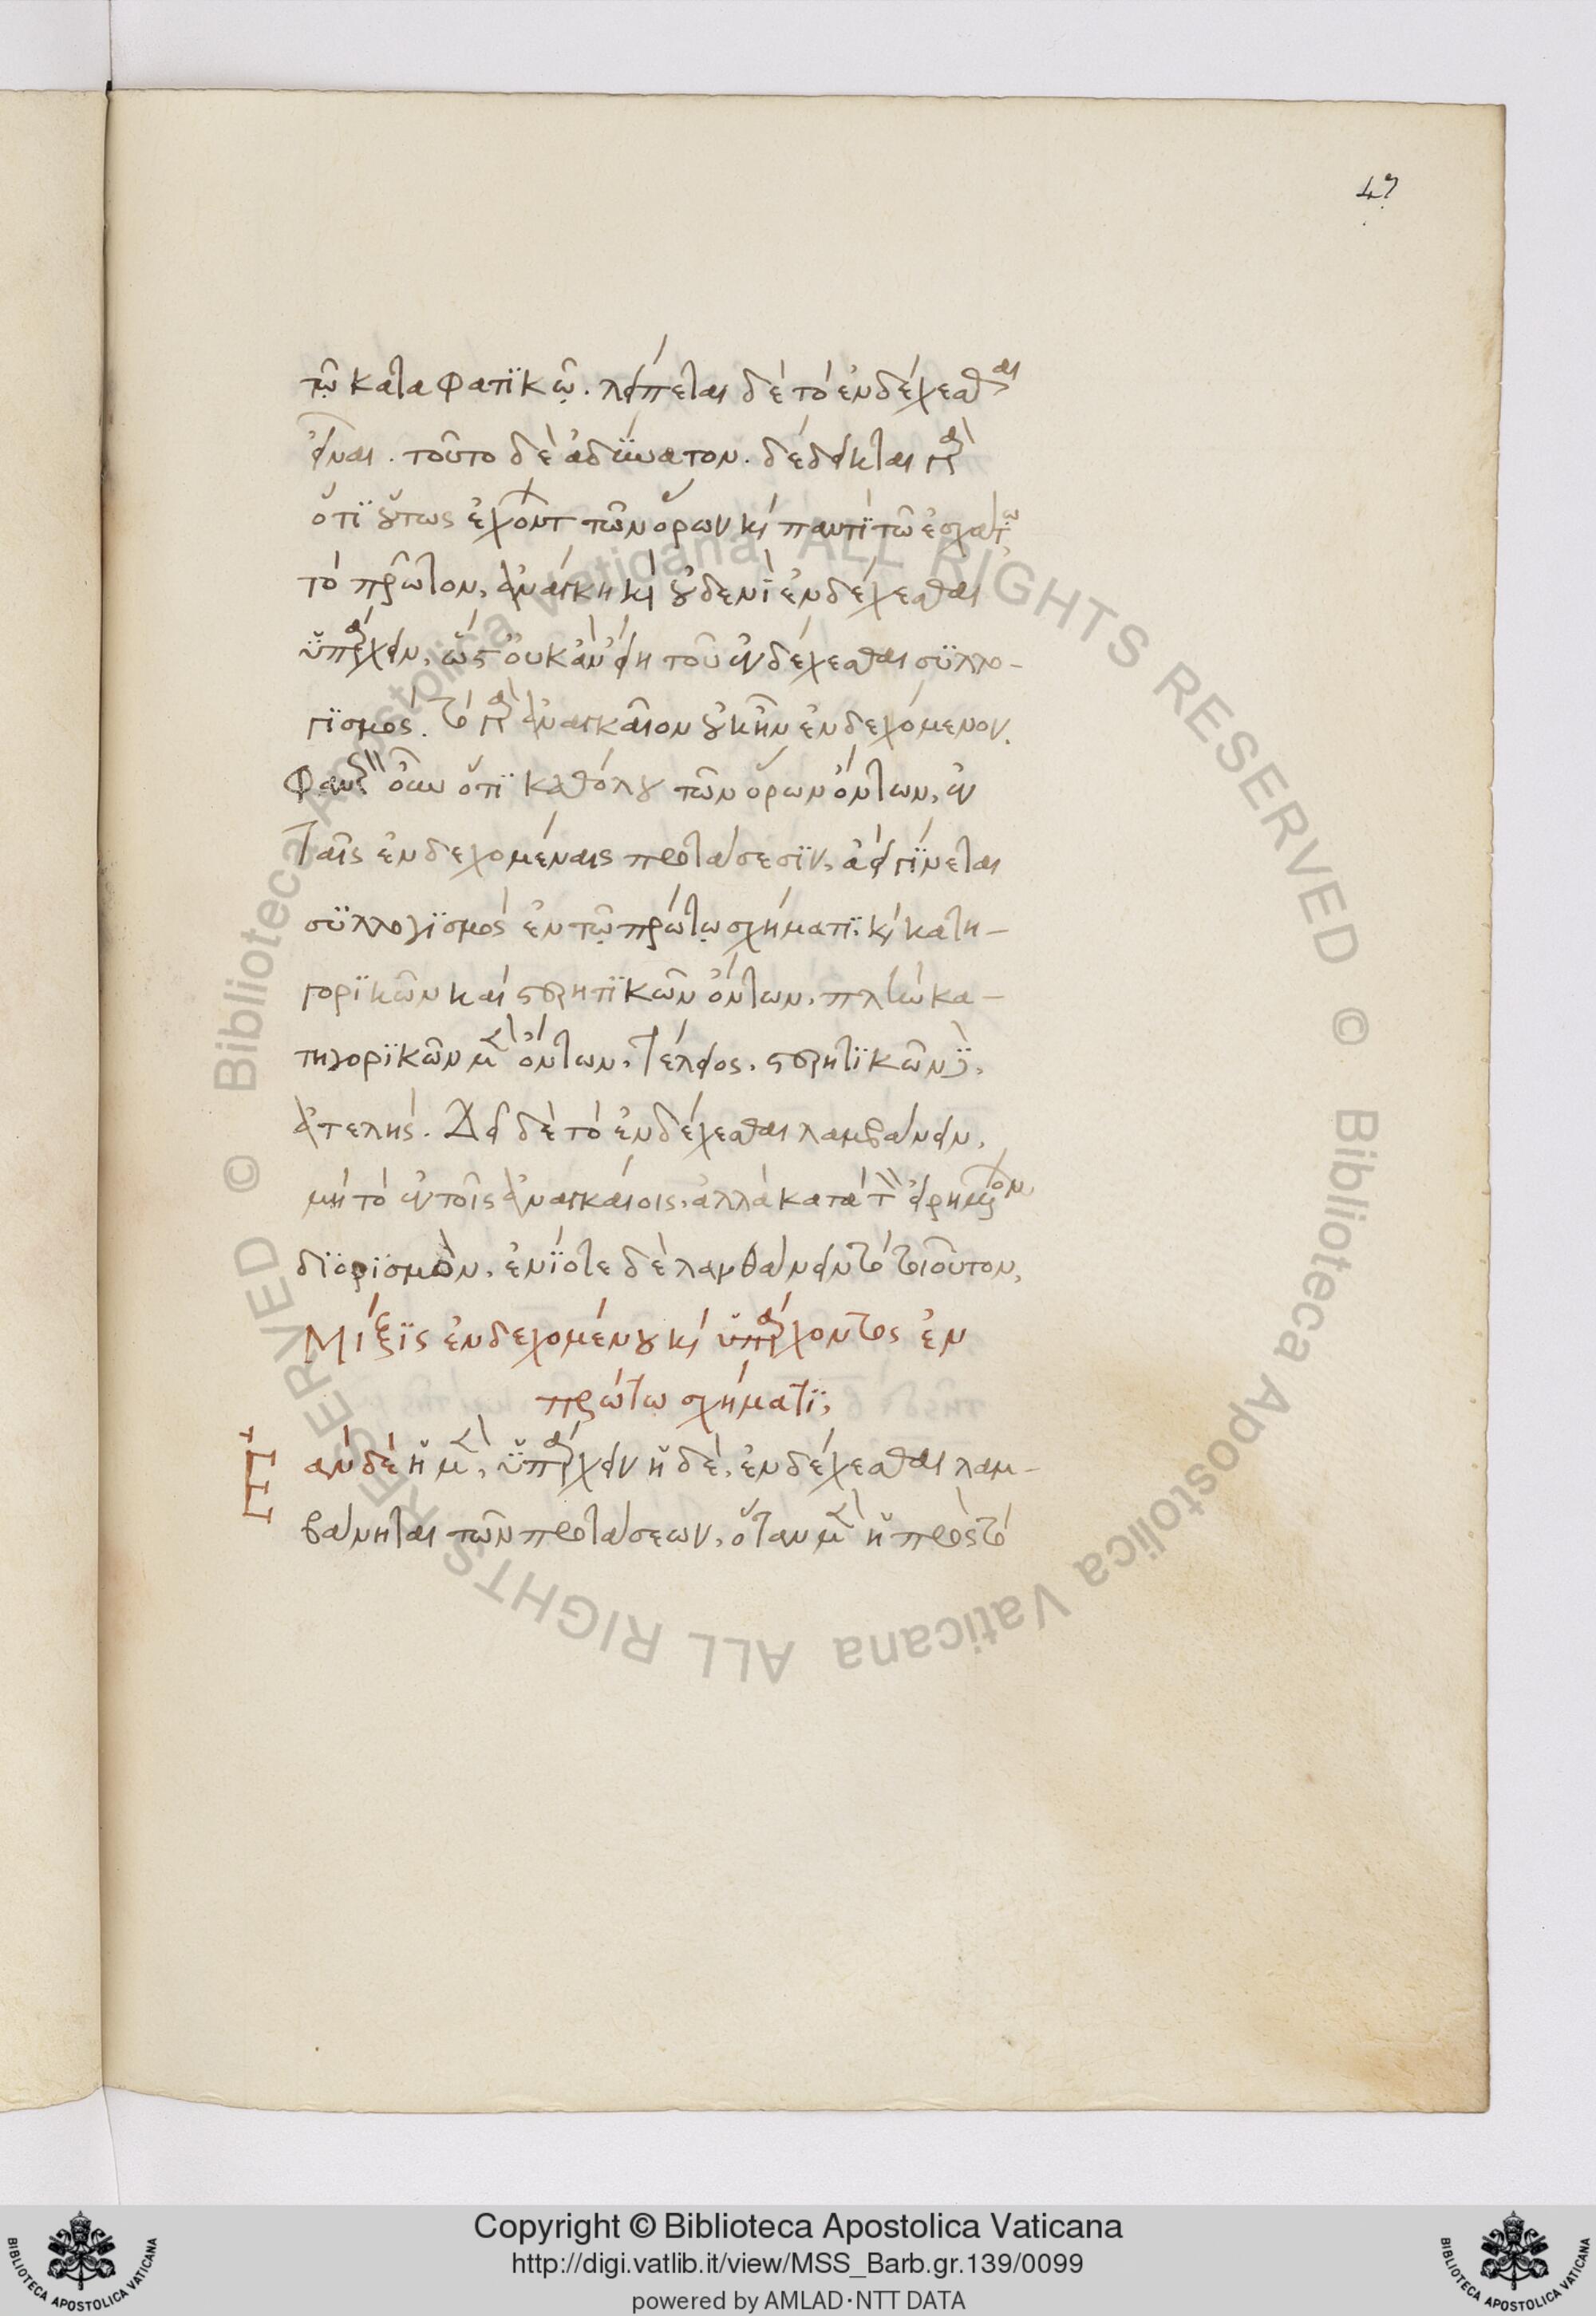 47
τῷ καταφατικῷ. λείπεται δὲ τὸ ἐνδέχεσθαι
εἶναι. τοῦτο δὲ ἀδύνατον. δέδεικται γὰρ
ὅτι οὕτως ἐχόντων τῶν ὅρων καὶ παντὶ τῶ ἐσχάτω
τὸ πρῶτον, ἀνάγκη καὶ οὐδενὶ ἐνδέχεσθαι
ὑπάρχειν, ὥστ οὐκ ἂν εἴη τοῦ ἐνδέχεσθαι συλλο-
γισμός. τὸ γὰρ ἀναγκαῖον οὐκ ἦν ἐνδεχόμενον.
Φανερὸν οὖν ὅτι καθόλου τῶν ὅρων ὄντων, ἐν
ταῖς ἐνδεχομέναις προτάσεσιν, ἀεὶ γίνεται
συλλογισμὸς ἐν τῷ πρώτῳ σχήματι, καὶ κατη-
γορικῶν καὶ στερητικῶν ὄντων. πλὴν κα-
τηγορικῶν μὲν ὄντων, τέλειος. στερητικῶν δὲ,
ἀτελής. Δεῖ δὲ τὸ ἐνδέχεσθαι λαμβάνειν,
μὴ τὸ ἐν τοῖς ἀναγκαίοις, ἀλλὰ κατὰ τὸν εἰρημένον
διορισμὸν, ἐνίοτε δὲ λανθάνειν τὸ τοιοῦτον,
Μίξις ἐνδεχομένου καὶ ὑπάρχοντος ἐν
πρώτῳ σχήματι,
Ἐὰν δὲ ἡ μὲν, ὑπάρχειν ἡ δὲ, ἐνδέχεσθαι λαμ-
βάνηται τῶν προτάσεων, ὅταν μὲν ἡ πρὸς τὸ
© Biblioteca Apostolica Vaticana ALL RIGHTS RESERVED © Biblioteca Apostolica Vaticana ALL RIGHTS RESERVED
Copyright © Biblioteca Apostolica Vaticana
http://digi.vatlib.it/view/MSS_Barb.gr.139/0099
powered by AMLAD·NTT DATA
BIBLIOTECA APOSTOLICA VATICANA
BIBLIOTECA APOSTOLICA VATICANA